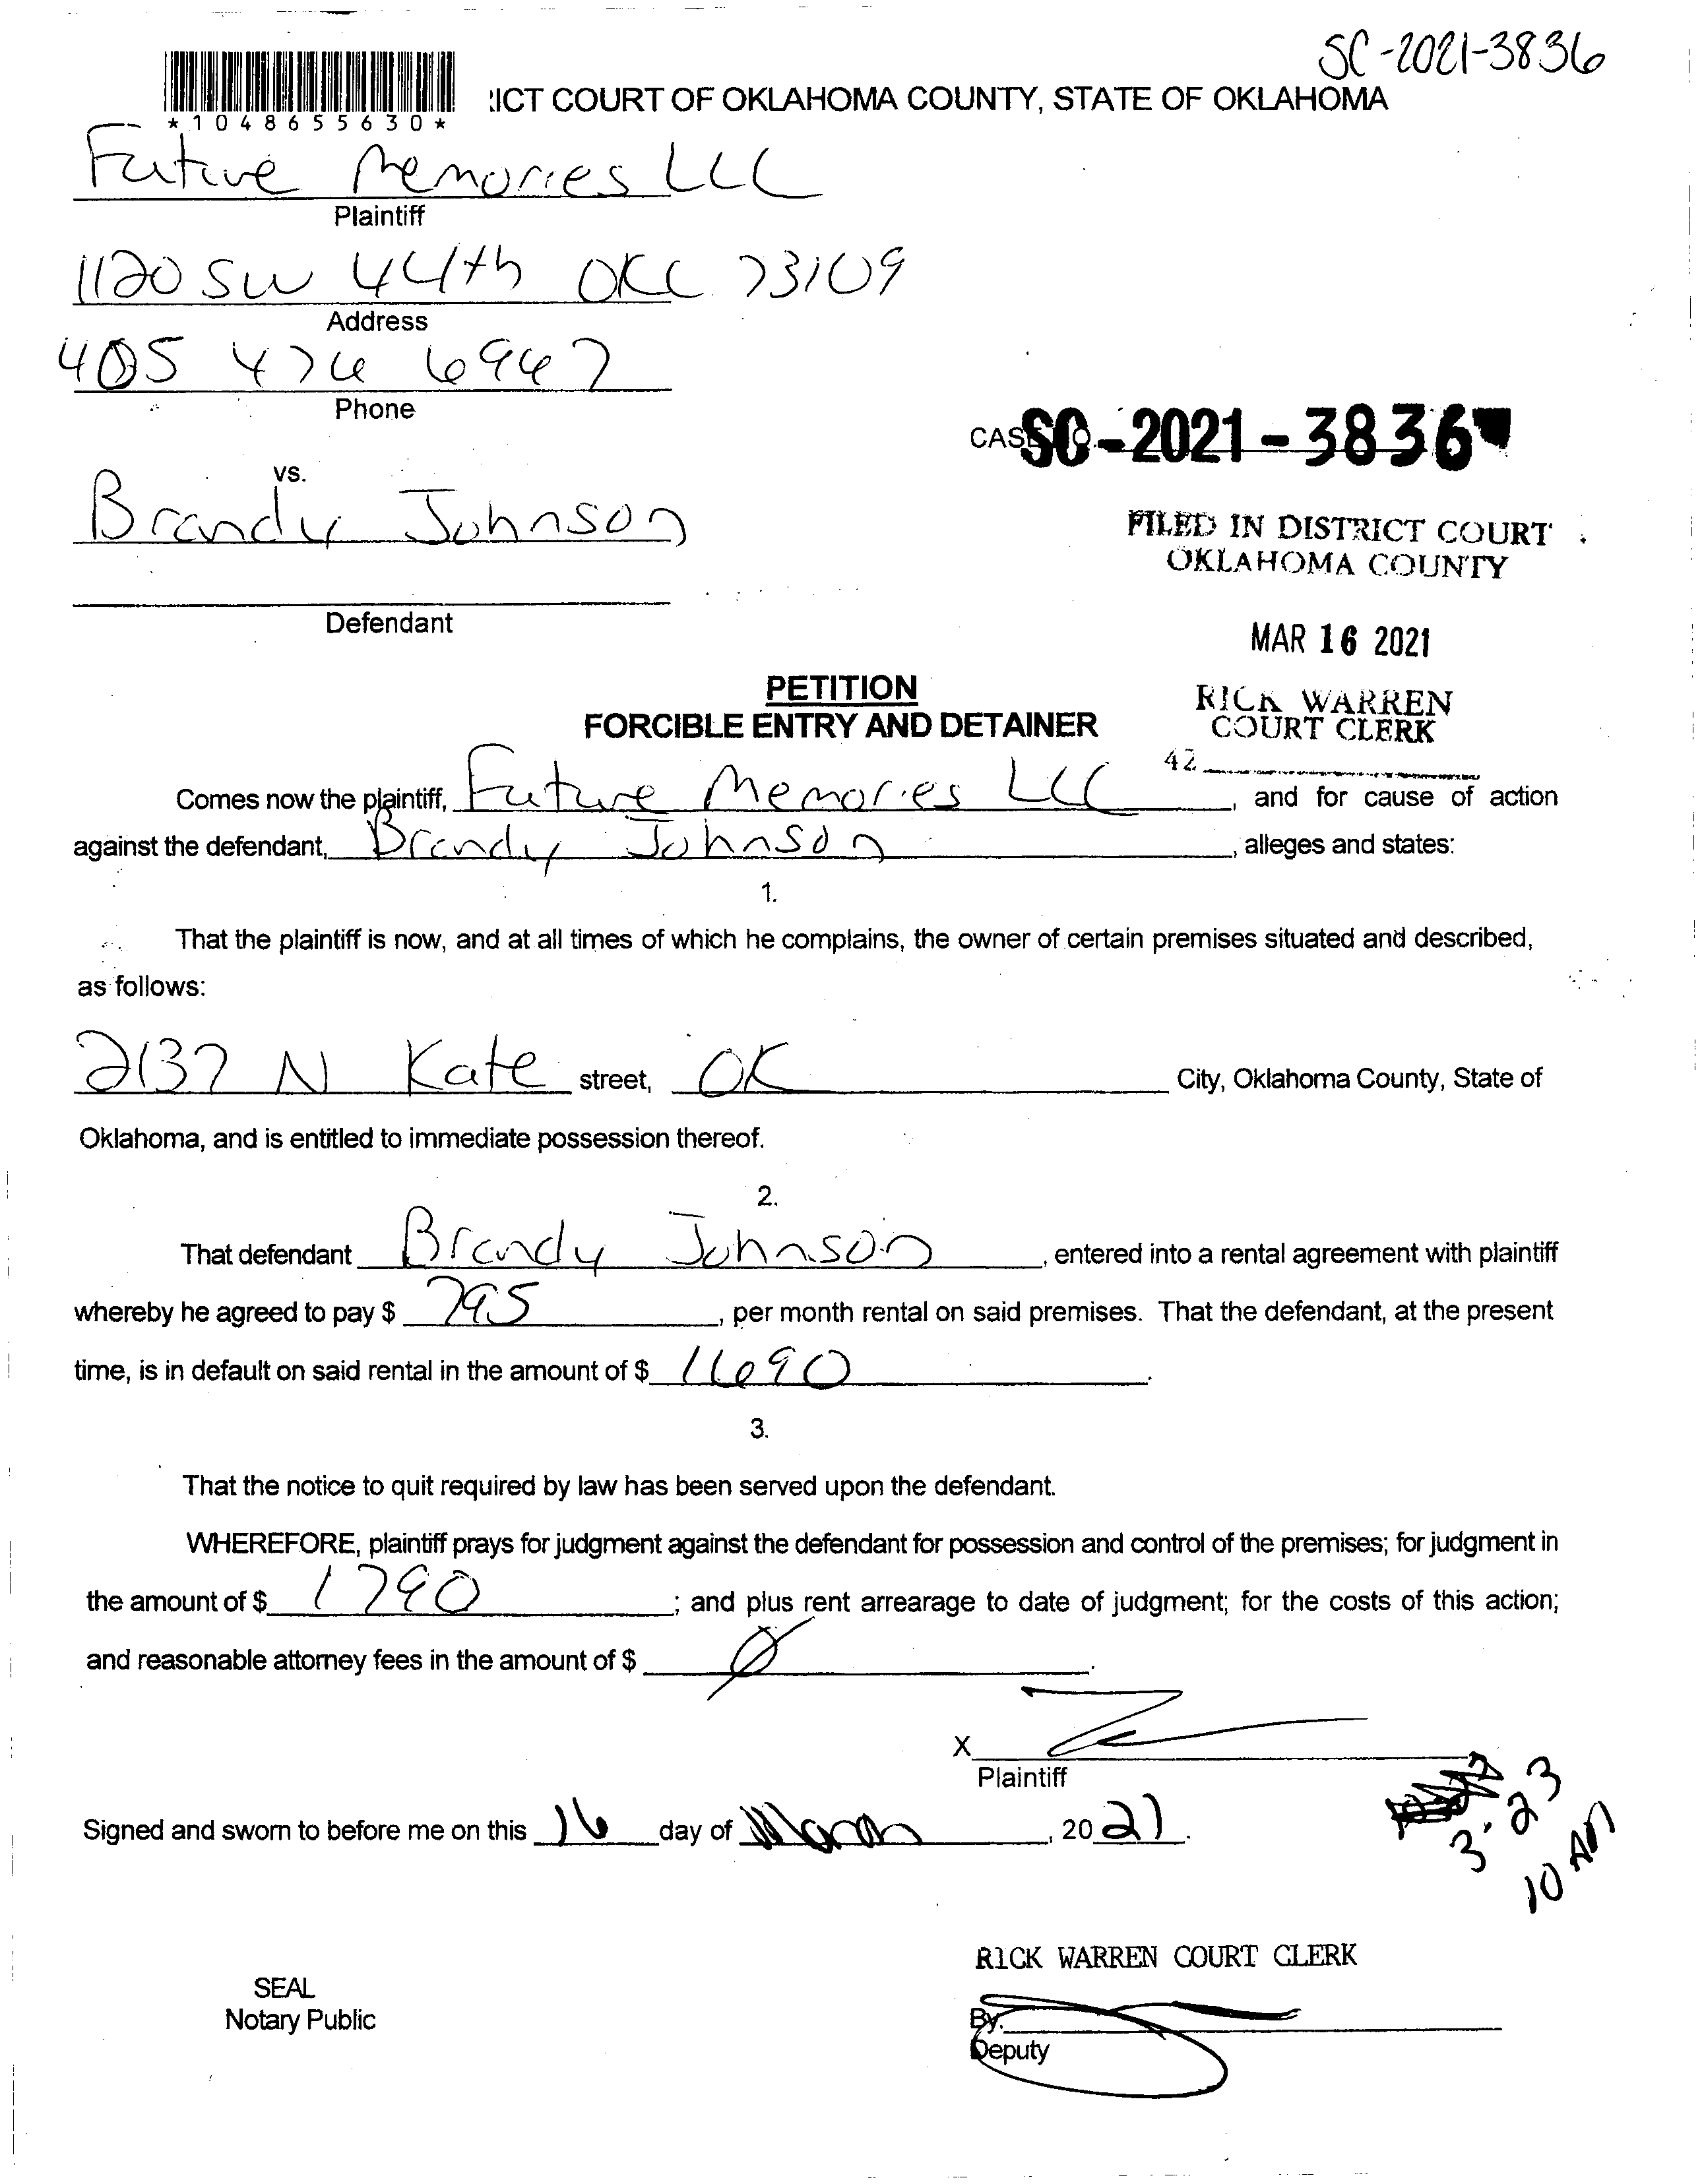 SC-2021-3836
ICT COURT OF OKLAHOMA COUNTY, STATE OF OKLAHOMA
*1048655630*
Future Memories LLC
Plaintiff
1120 SW 44th OKC 73109
Address
405 476 6967
Phone
CASE NO. SC-2021-3836
vs.
Brandy Johnson
FILED IN DISTRICT COURT
OKLAHOMA COUNTY
Defendant
MAR 16 2021
PETITION
FORCIBLE ENTRY AND DETAINER
RICK WARREN
COURT CLERK
42
Comes now the plaintiff, Future Memories LLC, and for cause of action
against the defendant, Brandy Johnson, alleges and states:
1.
That the plaintiff is now, and at all times of which he complains, the owner of certain premises situated and described,
as follows:
2137 N Kate street, OK City, Oklahoma County, State of
Oklahoma, and is entitled to immediate possession thereof.
2.
That defendant Brandy Johnson, entered into a rental agreement with plaintiff
whereby he agreed to pay $ 795, per month rental on said premises. That the defendant, at the present
time, is in default on said rental in the amount of $ 1690.
3.
That the notice to quit required by law has been served upon the defendant.
WHEREFORE, plaintiff prays for judgment against the defendant for possession and control of the premises; for judgment in
the amount of $ 1790; and plus rent arrearage to date of judgment; for the costs of this action;
and reasonable attorney fees in the amount of $ 0.
X
Plaintiff
Signed and sworn to before me on this 16 day of March, 2021.
3.23
10 AM
RICK WARREN COURT CLERK
SEAL
Notary Public
By.
Deputy